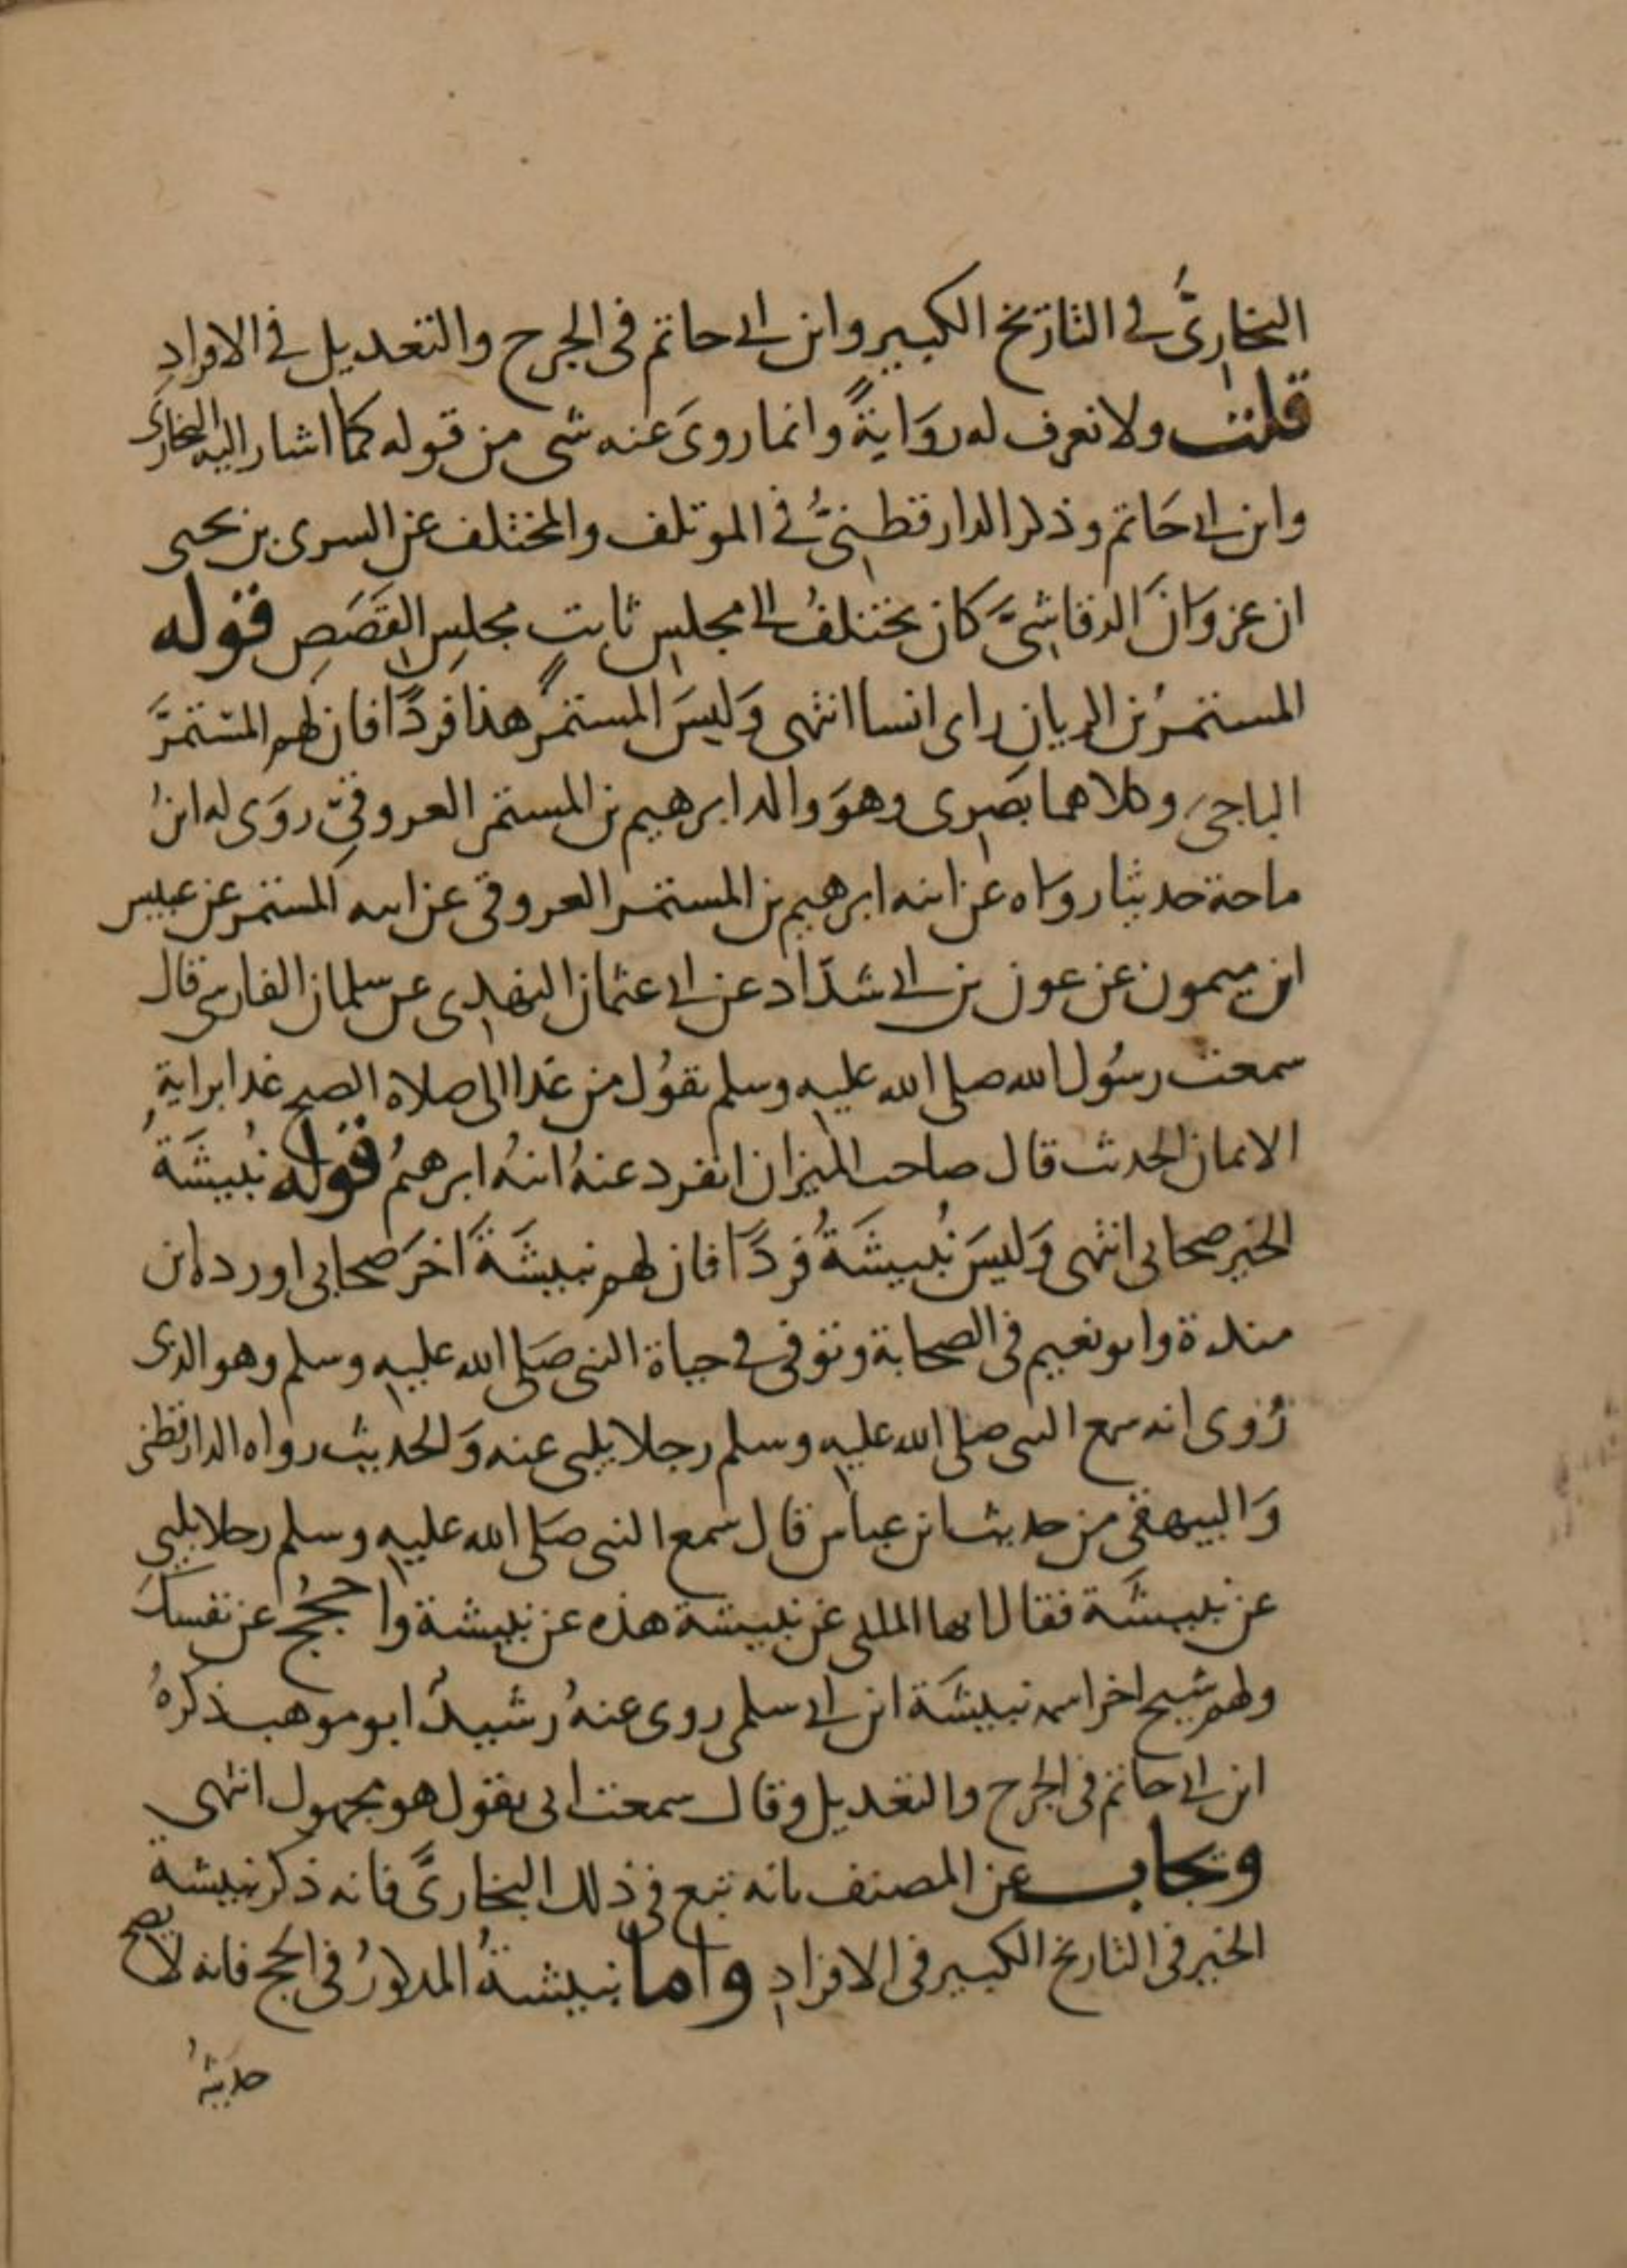 البخاريُّ في التاريخ الكبير وابن ابي حاتم في الجرح والتعديل في الافرادِ
قلت ولا نعرف له روَايةً وانما روىَ عنه شي من قوله كما اشار اليه البخاريُّ
وابن ابي حَاتم وذكر الدارقطنيُّ في الموتلف والمختلف عن السري بن يحيى
ان عزوَانَ الرقاشيَّ كان يختلفُ الى مجلسِ ثابتٍ مجلسِ القَصَصِ قوله
المستمرُ بن الريان راى انسا انتهى وَليسَ المستمرُّ هذا فردًا فان لهم المستمرَّ
الناجيَ وكلاهما بصَرِي وهوَ والد ابرهيم بن المستمر العروقيِّ روَى له ابنُ
ماجة حديثا روَاه عن ابنه ابرهيم بن المستمر العروقي عن ابيه المستمر عن عبيس
ابن ميمون عن عون بن ابي شدّاد عن ابي عثمان النهدِي عن سلمان الفارسي قال
سمعت رسُول الله صلى الله عليه وسلم يقوُل من غدا الى صلاة الصبح غدا براية
الايمان الحديث قال صاحب الميزان انفرد عنهُ ابنهُ ابرهيمُ قوله نُبيشَةُ
الخير صحابي انتهى وَليسَ نُبيشَةُ فردًا فان لهم نبيشَةَ اخرَ صحابي اورده ابن
مندة وابو نعيم في الصحابة وتوفي في حياة النبي صَلى الله عليه وسلم وهو الذي
رُوى انه سمع النبي صلى الله عليه وسلم رجلا يلبي عنه وَالحديث رواه الدارقطني
وَالبيهقي من حديث ابن عباس قال سَمع النبي صَلى الله عليه وسلم رجلا يلبي
عن نبيشَة فقال ايها الملبي عن نبيشة هذه عن نبيشة واحجُجْ عن نفسكَ
ولهم شيخ اخر اسمه نبيشَة ابن ابي سلمى روى عنهُ رُشيدٌ ابو موهب ذكرهُ
ابن ابي حاتم في الجرح والتعديل وقال سمعت ابي يقول هو مجهول انتهى
ويجاب عن المصنف بانه تبع في ذلك البخاريَّ فانه ذكر نبيشة
الخير في التاريخ الكبير في الافرادِ واما نبيشةُ المذكورُ في الحج فانه لا يصح
حديثهُ